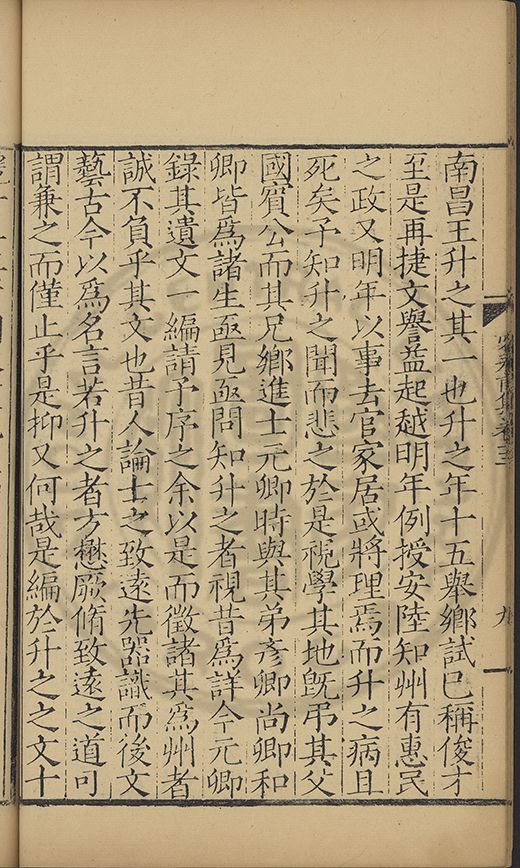 南昌王升之其一也升之年十五舉鄉試巳稱俊才
至是再捷文譽益起越明年例授安陸知州有惠民
之政又明年以事去官家居或將理焉而升之病且
死矣予知升之聞而悲之於是視學其地旣弔其父
國賓公而其兄鄉進士元卿時與其弟彥卿尚卿和
卿皆爲諸生亟見亟問知升之者視昔爲詳今元卿
錄其遺文一編請予序之余以是而徵諸其爲州者
誠不負乎其文也昔人論士之致遠先器識而後文
藝古今以爲名言若升之者方懋厥脩致遠之道可
謂兼之而僅止乎是抑又何哉是編於升之之文十